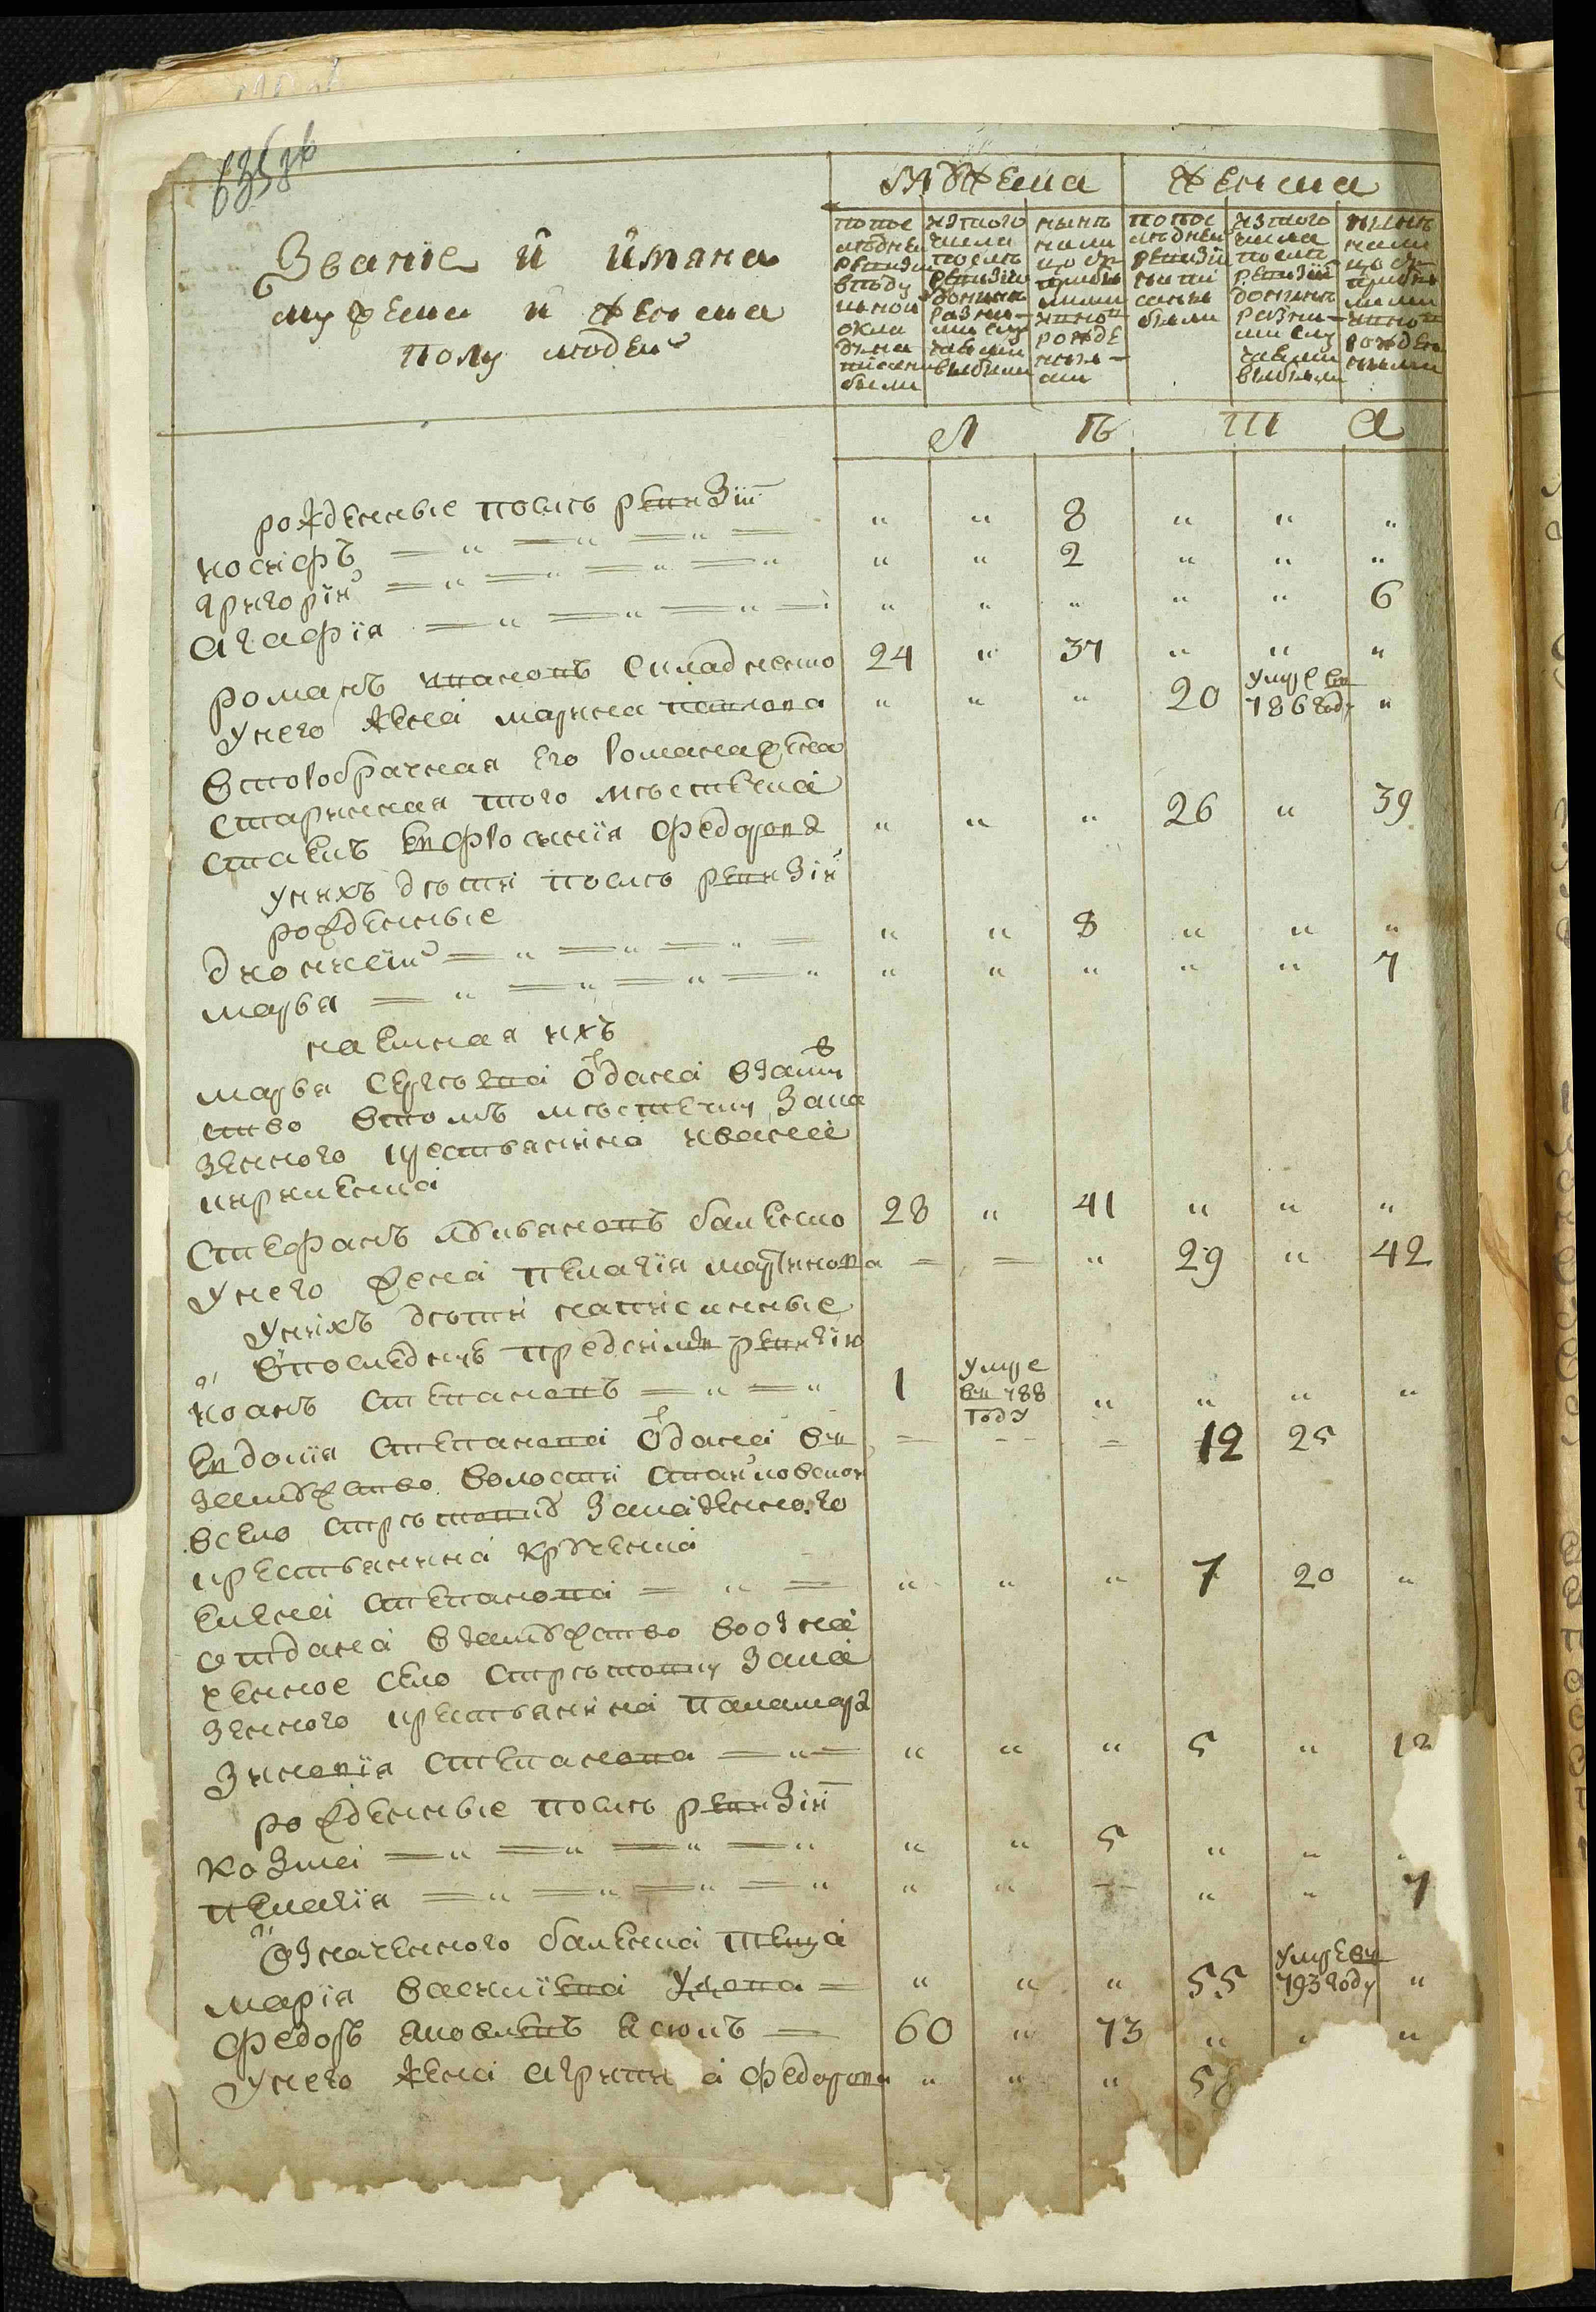 635об
Звание и имяна
мужеска и женска
полу людей
мужеска
женска
по пос
лѣдней
ревизии
в поду
шной
окла
дъ на
писаны
были
из того
числа
послѣ
ревизии
до нынѣ
разны
ми слу
чаями
выбыли
нынѣ
на ли
цо съ
прибы
лыми
и вновь
рожде
нны
ми
по пос
лѣдней
ревизии
сказки
были
из того
числа
послѣ
ревизии
до нынѣ
разны
ми слу
чаями
выбыли
нынѣ
на ли
цо съ
прибы
лыми
и вновь
рожден
ными
Л Ѣ Т А
рожденные послѣ ревизіи
иосифъ 8
григорій 2
агафія 6
романъ ивановъ складненко 24 37
у него жена марина павлова 20 умре въ 786 году
второбрачная его романа жена
старинная того мѣстечка
ставъ евфросинія федорова 26 39
у нихъ дѣти послѣ ревизіи
рожденные
дионисій 8
марья 7
марья отдана в замуж
ство в томъ мѣстечку за ка
зенного крестьянина ивана
кириленка
стефанъ ивановъ баленко 28 41
у него жена пелагія мартинова 29 42
у нихъ дѣти написанные
в послѣднюю предъ симъ ревизію
иоанъ степановъ 1 умре въ 788 году
евдокія степанова отдана въ 12 25
замужство волости
в село за казенного
крестьянина
елена степанова 7 20
отдана в замужство в
женное село за ка
зенного крестьянина паламаря
зиновія степанова 5 12
рожденные послѣ ревизіи
козма 5
пелагія 7
означенного баленка теща
марія василіева 55 умре въ 793 году
федоръ яковлевъ 60 73
у него жена агрипина федорова 58